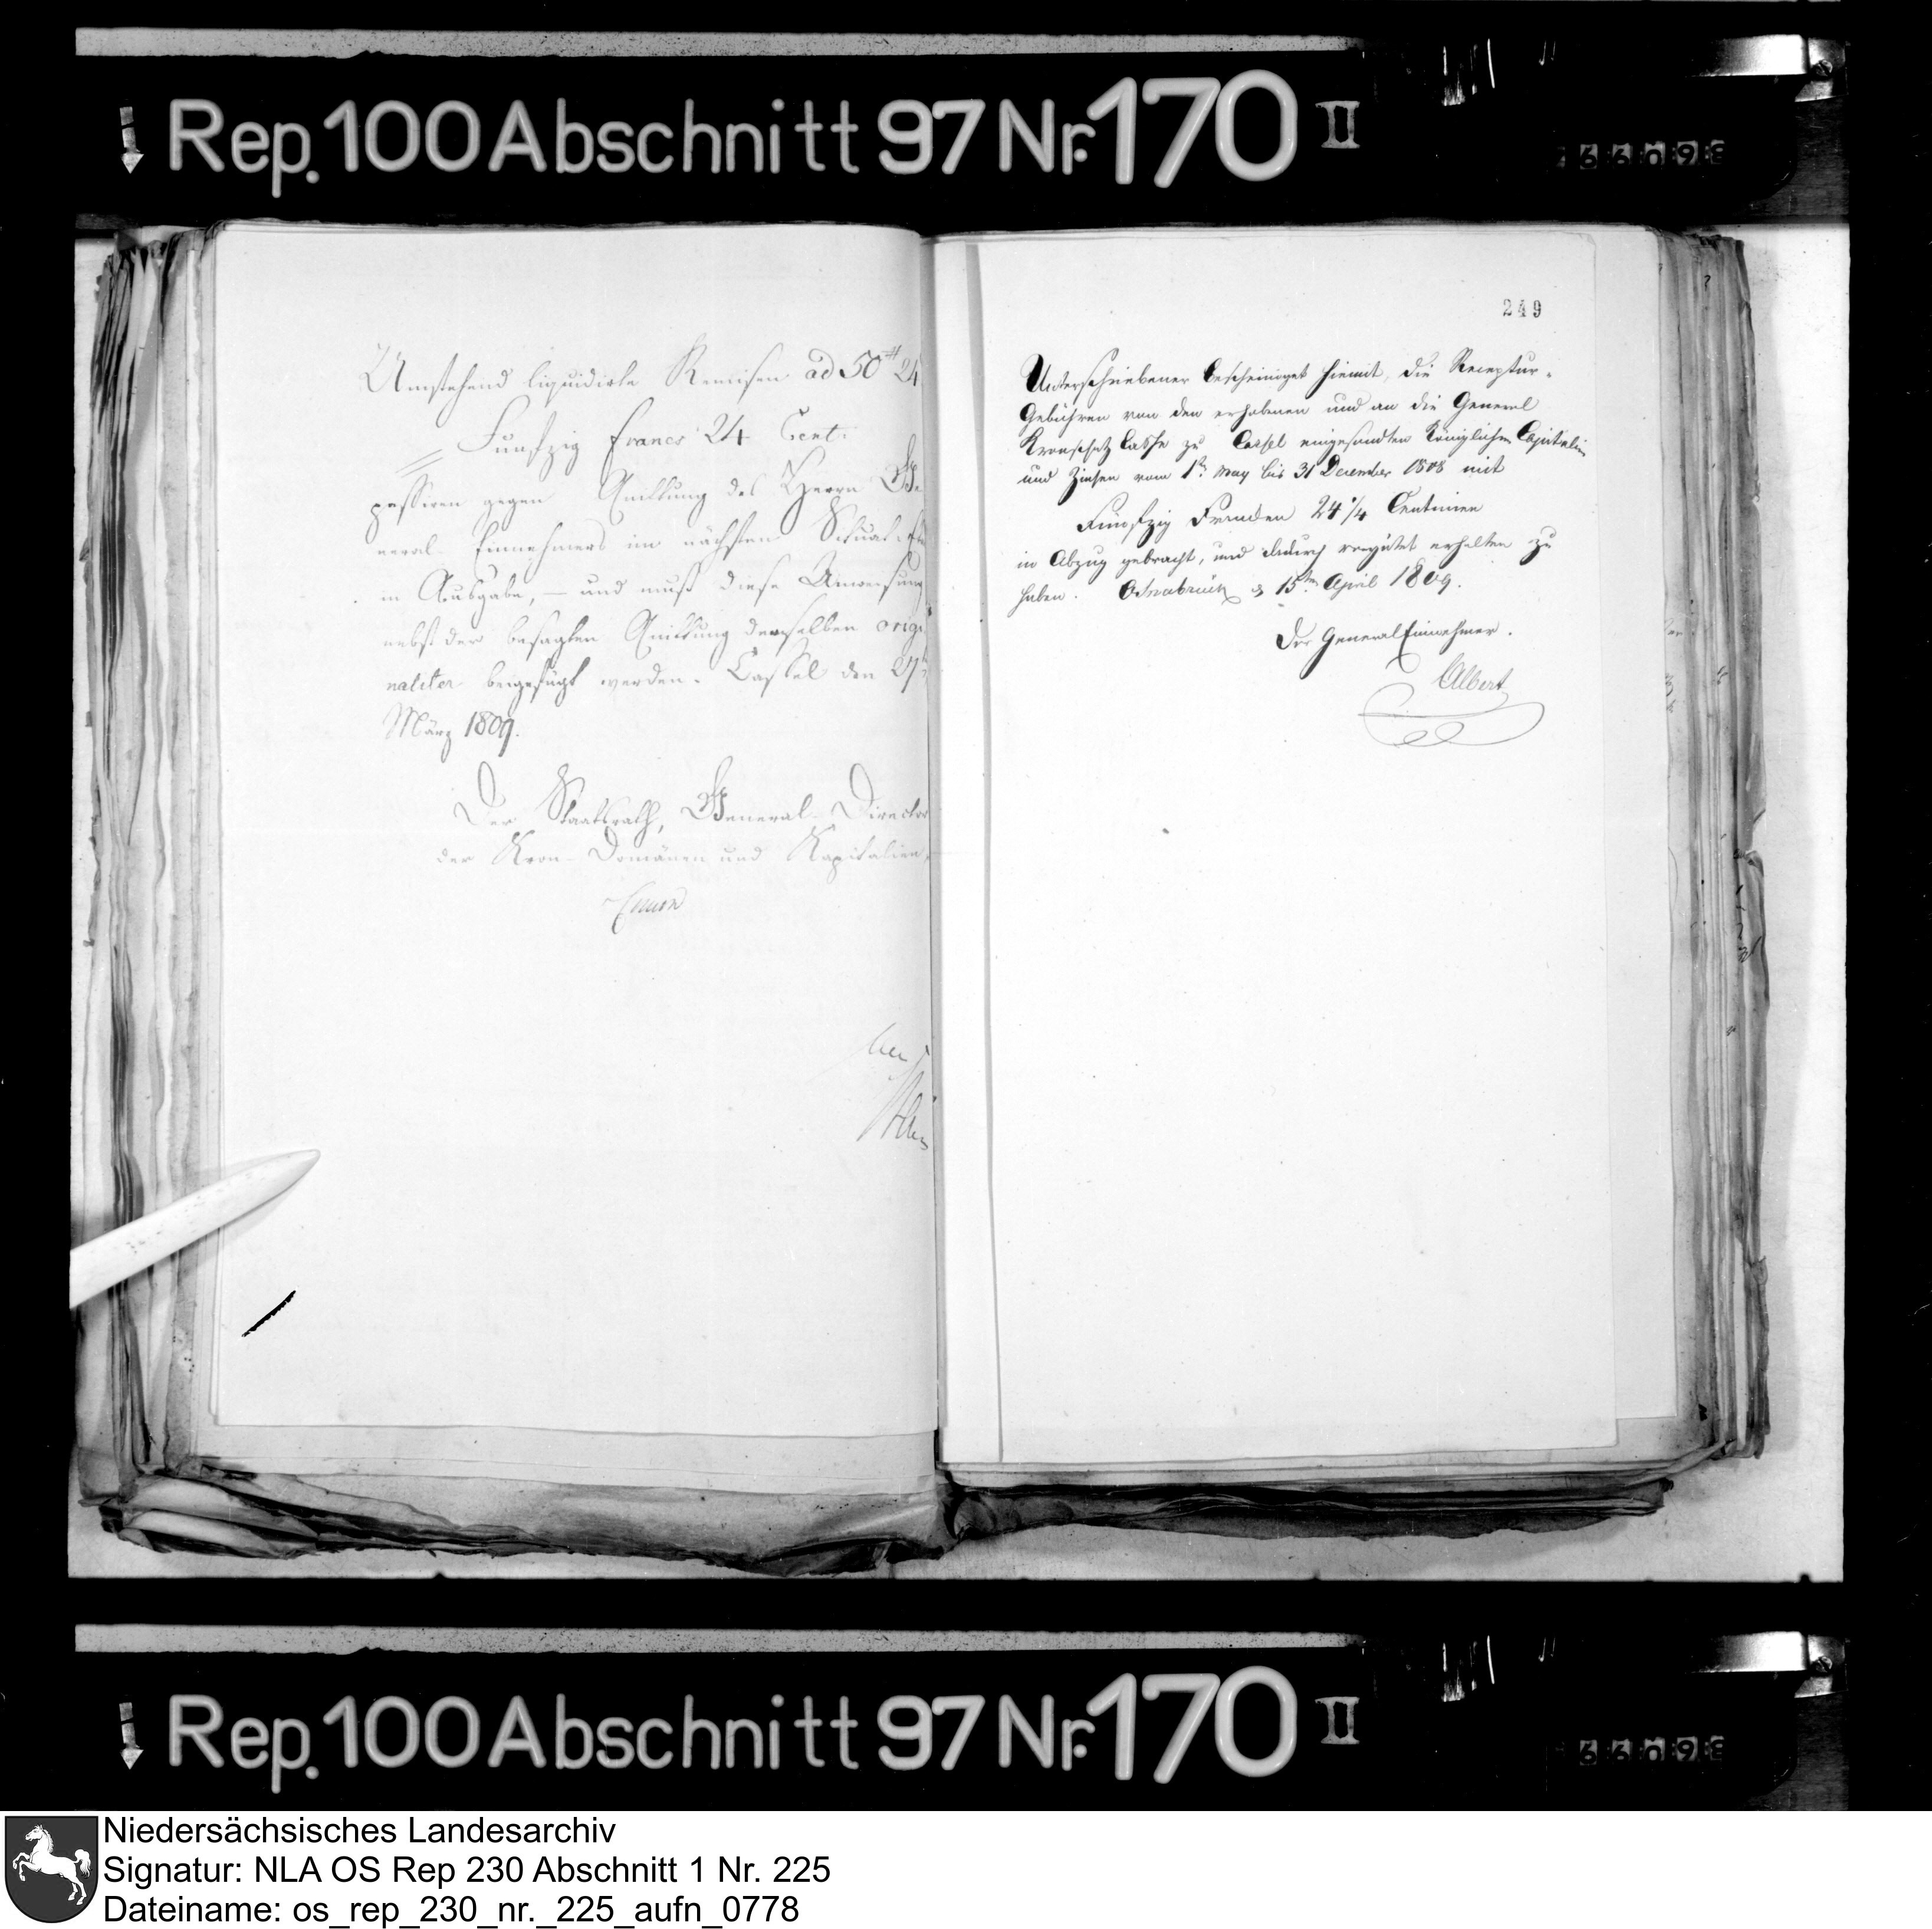 Rep. 100 Abschnitt 97 Nr. 170 II
Umstehend liquidirte Remisen ad 50 24
Funfzig Francs 24 Cent.
passiren gegen Quittung des Herrn Ge-
neral-Einnehmers im nächsten
in Ausgabe, – und muß diese Anweisung
nebst der besagten Quittung demselben origi
naliter beigefügt werden. Cassel den 27
März 1809.
Der Staatsrath, General-Director
der Kron-Domänen und Kapitalien,
249
Unterschriebener bescheiniget hiemit, die Receptur-
Gebühren von den erhobenen und an die General
Kronschatz Casse zu Cassel eingesandten Königlichen Capitalien
und Zinsen vom 1ten May bis 31 December 1808 mit
Fünfzig Franken 24 1/4 Centimen
in Abzug gebracht, und dadurch vergütet erhalten zu
haben. Osnabrück d 15ten April 1809.
Der General Einnehmer.
Albert
Rep. 100 Abschnitt 97 Nr. 170 II
Niedersächsisches Landesarchiv
Signatur: NLA OS Rep 230 Abschnitt 1 Nr. 225
Dateiname: os_rep_230_nr._225_aufn_0778